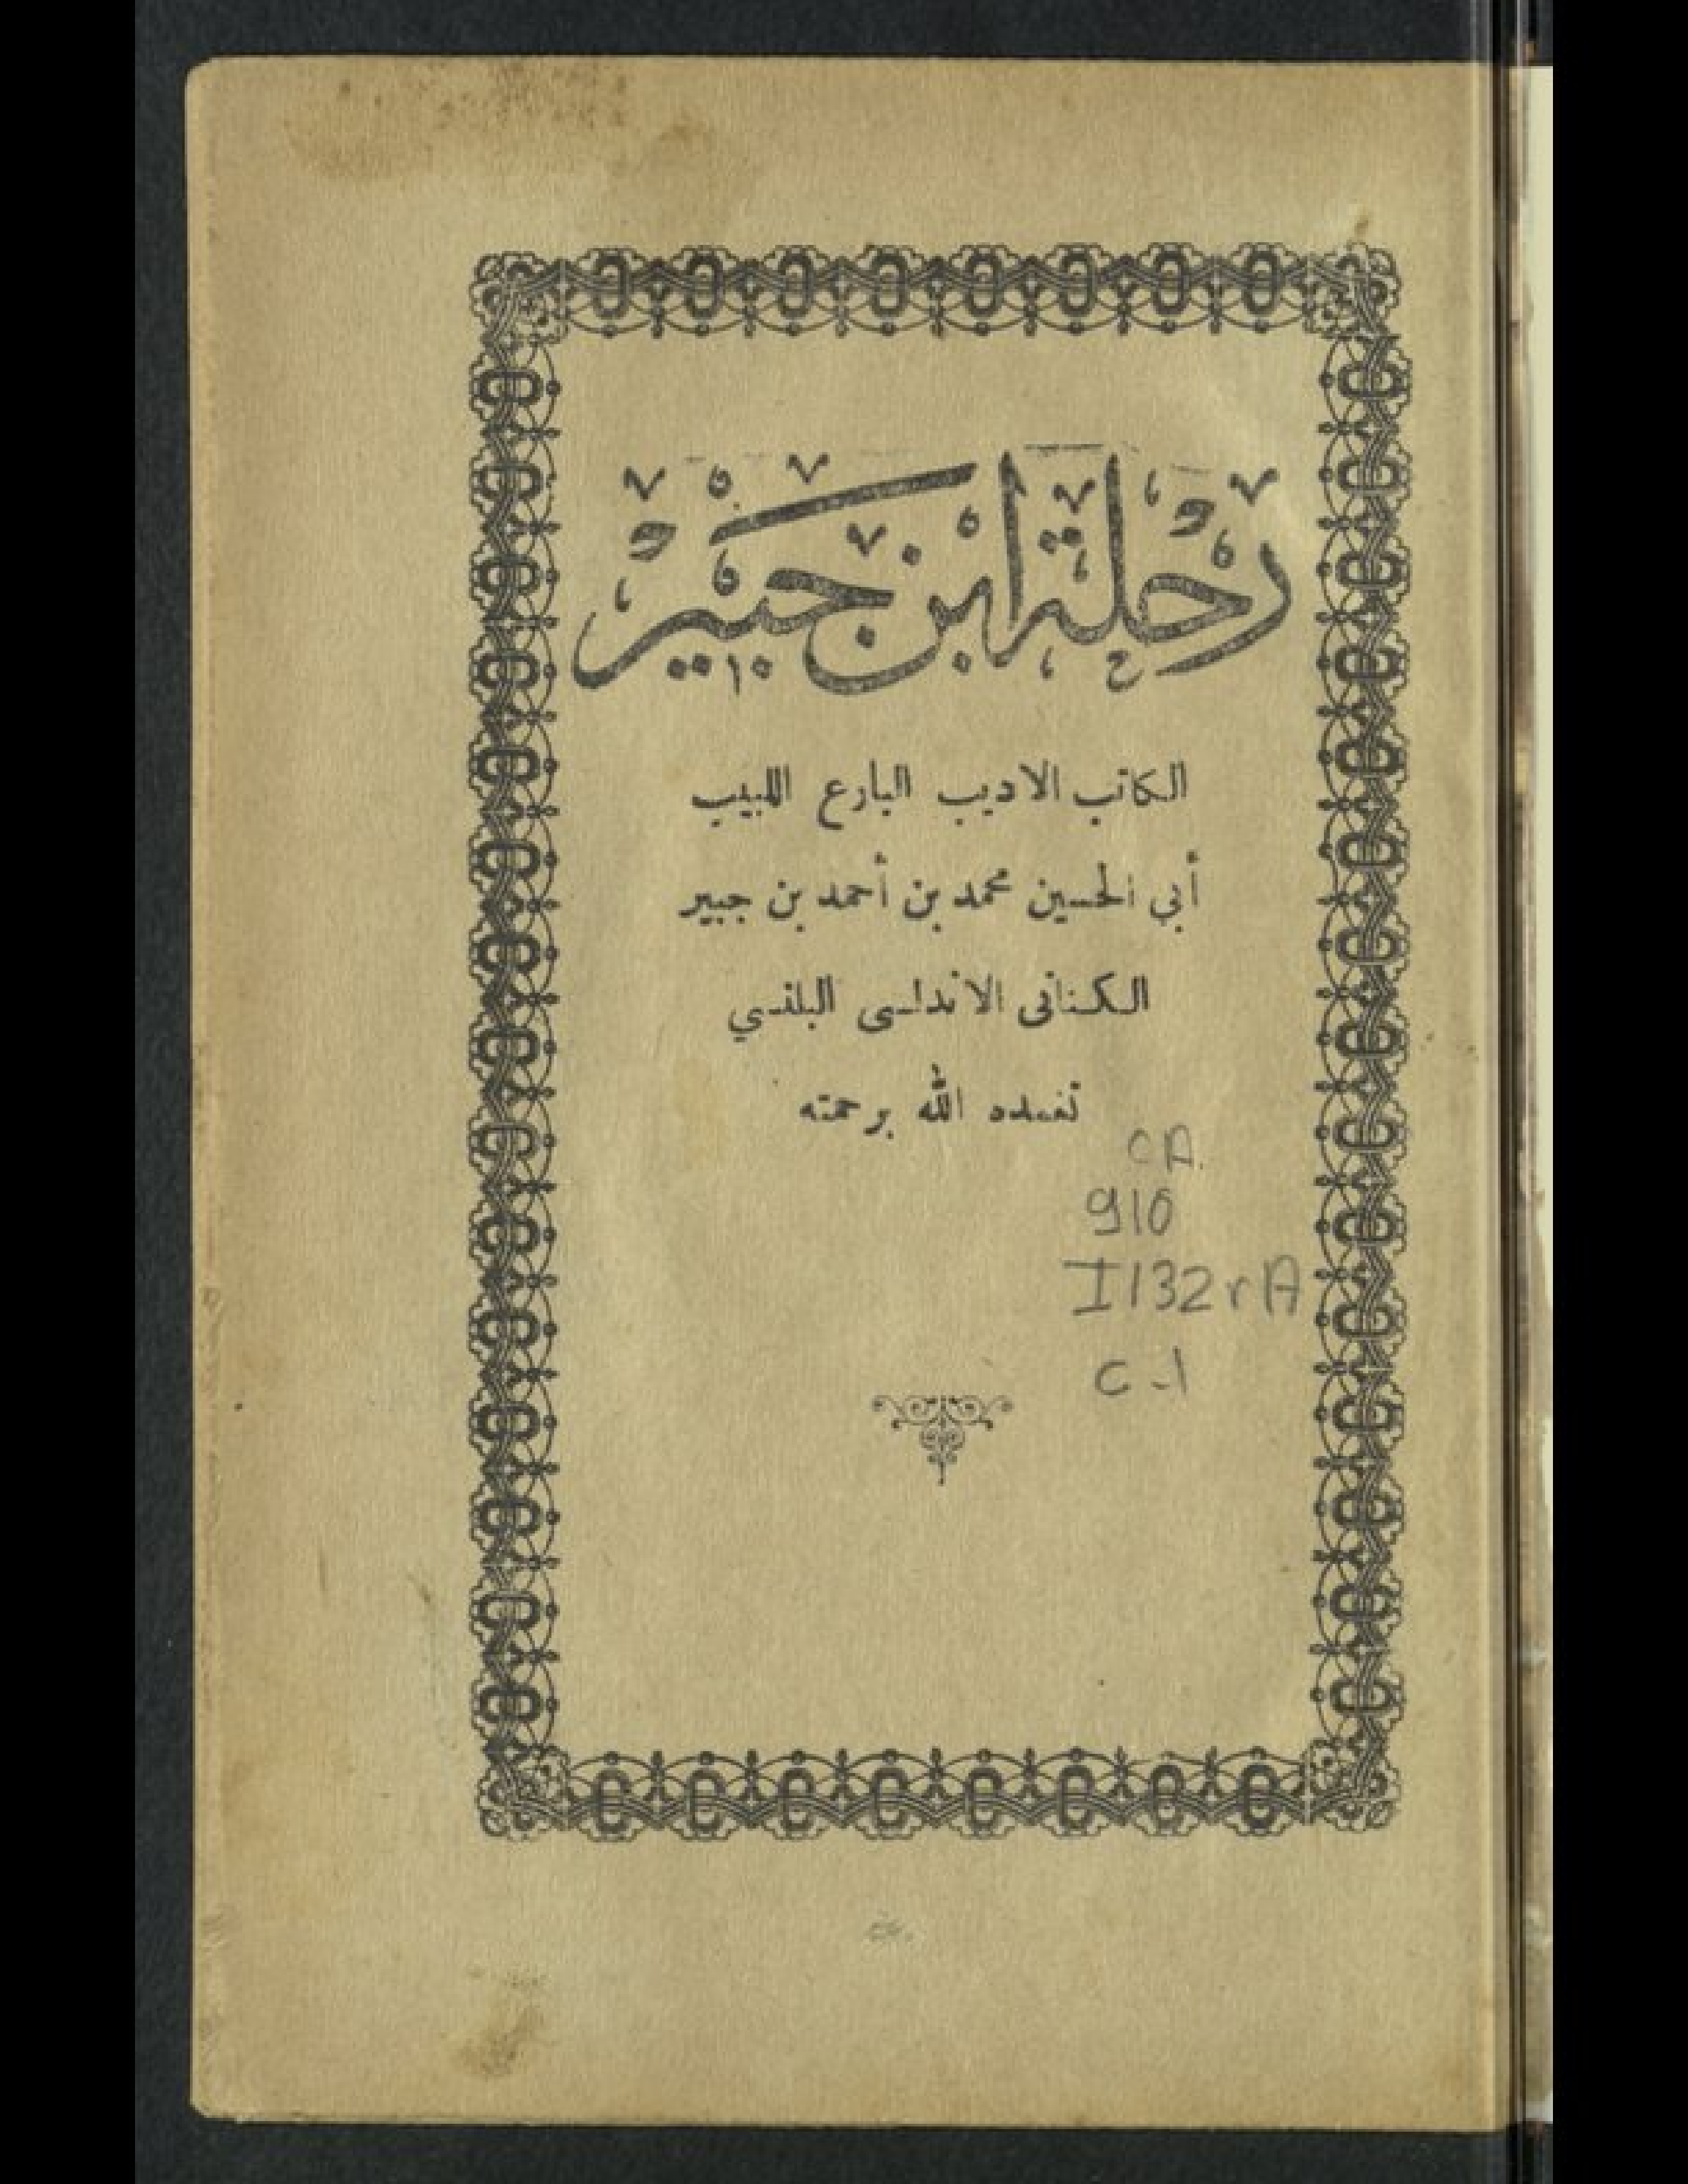 رحلة ابن جبير
الكاتب الاديب البارع اللبيب
أبي الحسين محمد بن أحمد بن جبير
الكناني الاندلسي البلنسي
تغمده الله برحمته
CA.
910
I132rA
C-1